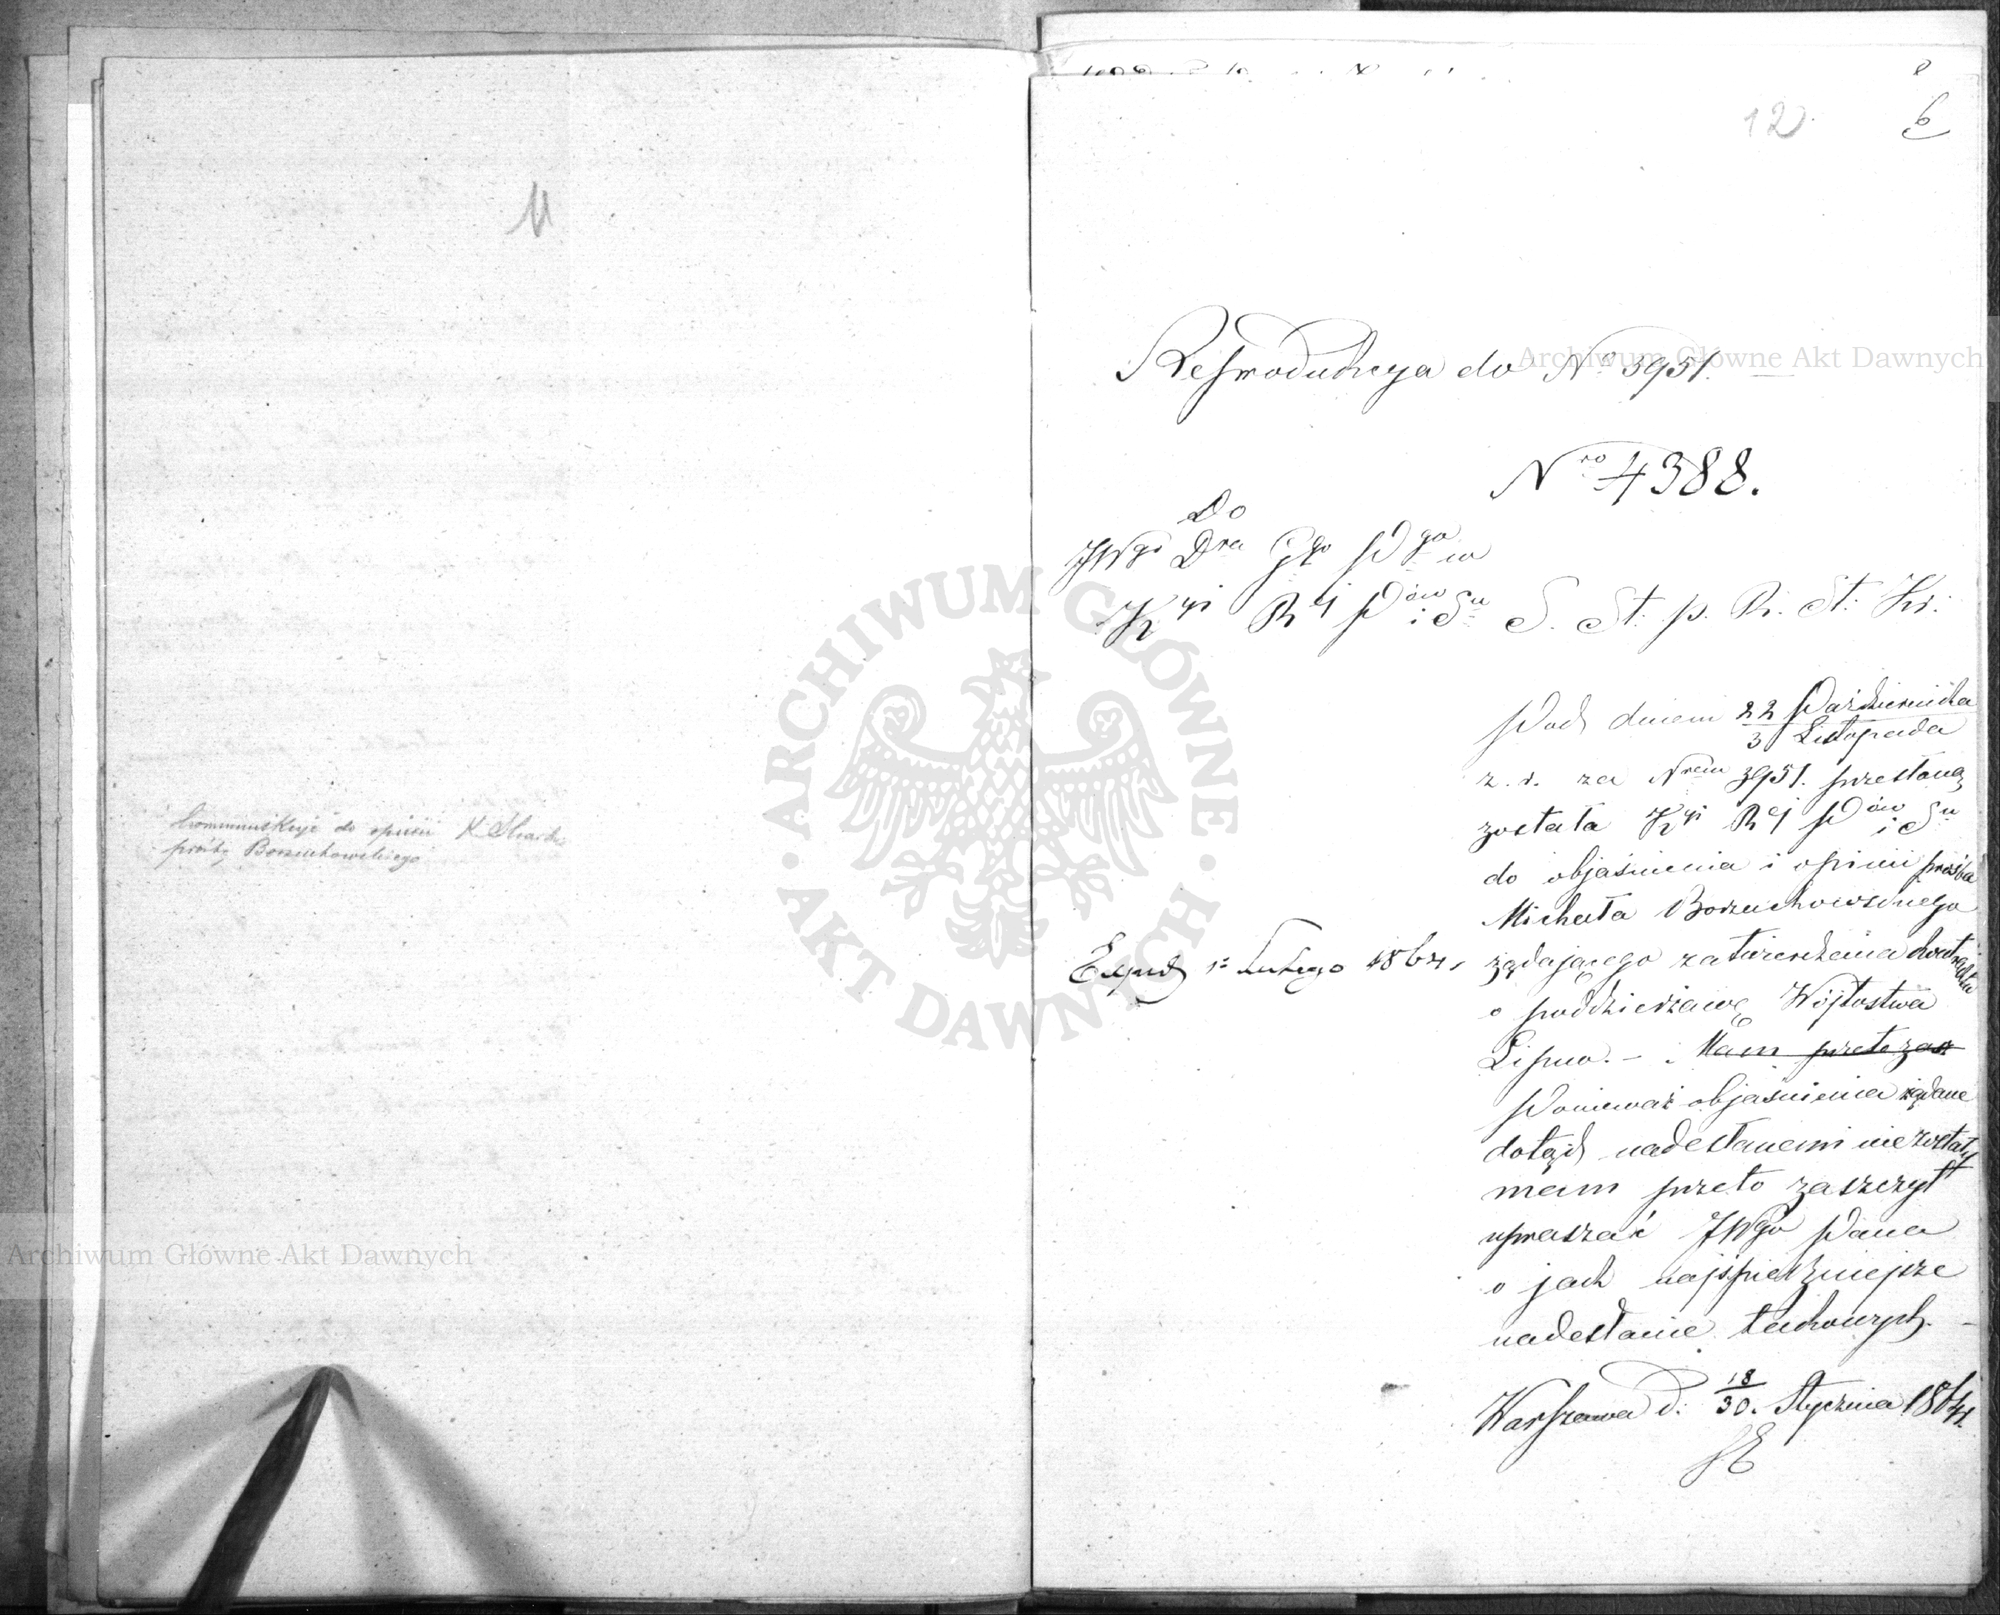 11
Kommunikuje do opinii K. Skarbu
prośbę Borzuchowskiego
12
6
Reprodukcya do No 3951.
Nro 4388.
Do
JWgo Dra Ggo Pgo w
Kyi Rej Pów i Su S. St. p. R. St. Kr.
Pod dniem 22 Października
3 Listopada
z. r. za Nrem 3951. przesłaną
została Kyi Rej Pów i Su
do objaśnienia i opinii prośba
Michała Borzuchowskiego
żądającego zatwierdzenia kontraktu
o poddzierżawę Wójtostwa
Lipno. – Mam przeto zasz
Ponieważ objaśnienia żądane
dotąd nadesłanemi nie zostały
mam przeto zaszczyt
upraszać JWgo Pana
o jak najśpieszniejsze
nadesłanie takowych. –
Exped 1o Lutego 1864.
Warszawa d. 18/30. Stycznia 1864
Archiwum Główne Akt Dawnych
Archiwum Główne Akt Dawnych
ARCHIWUM GŁÓWNE AKT DAWNYCH